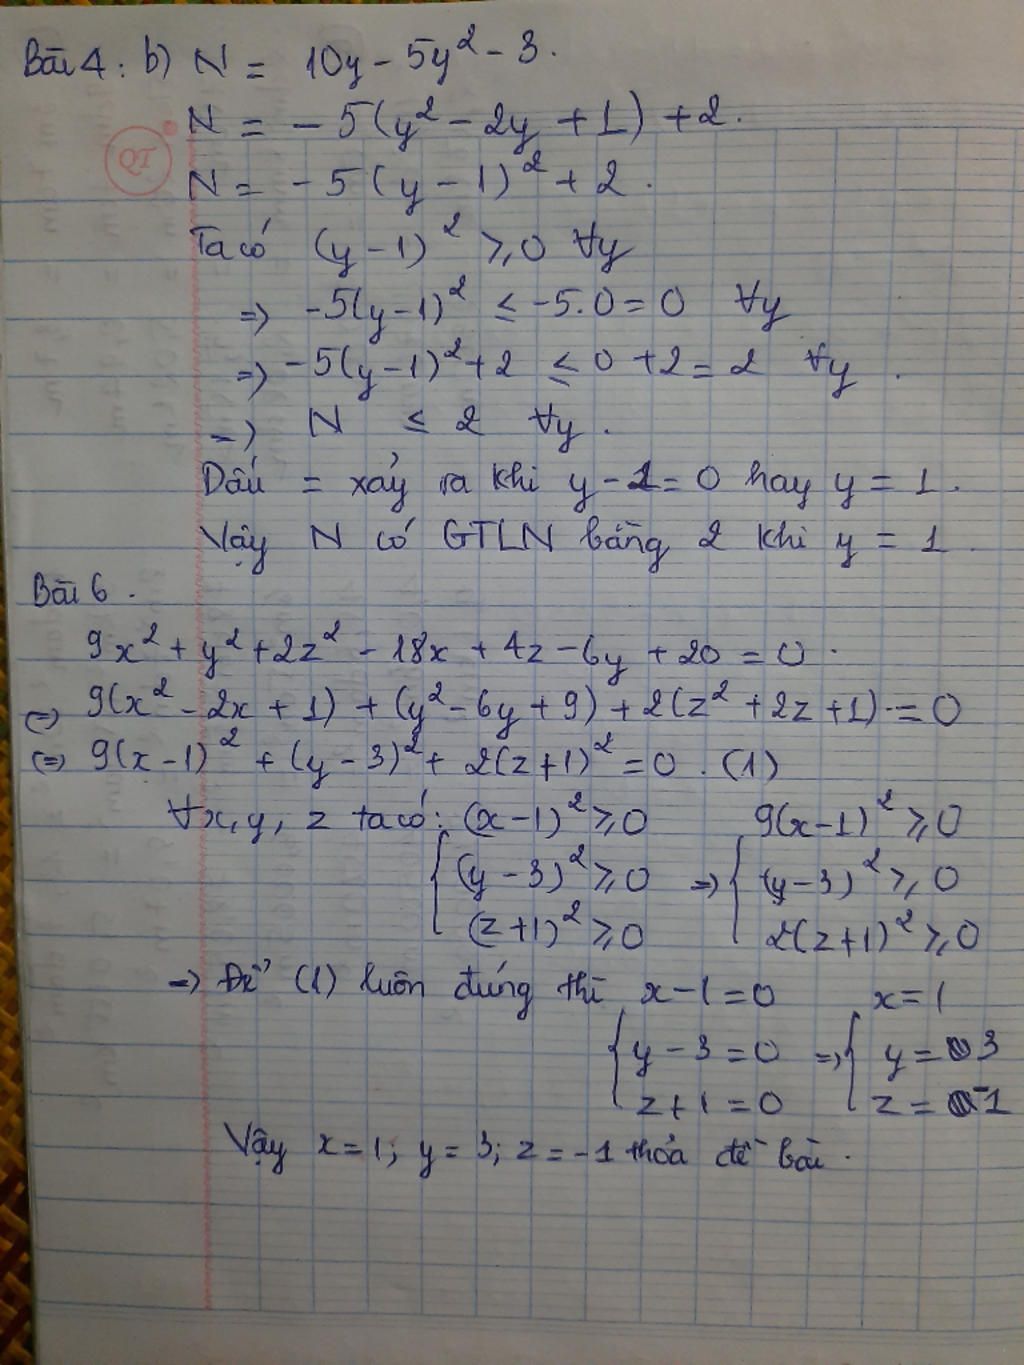 Bài 4: b) N = 10y - 5y² - 3.
N = - 5(y² - 2y + 1) + 2.
QT
N = - 5(y - 1)² + 2.
Ta có (y - 1)² ≥ 0 ∀y
=> -5(y-1)² ≤ -5.0 = 0 ∀y
=> -5(y-1)² + 2 ≤ 0 + 2 = 2 ∀y.
=> N ≤ 2 ∀y.
Dấu = xảy ra khi y - 1 = 0 hay y = 1.
Vậy N có GTLN bằng 2 khi y = 1.
Bài 6.
9x² + y² + 2z² - 18x + 4z - 6y + 20 = 0.
<=> 9(x² - 2x + 1) + (y² - 6y + 9) + 2(z² + 2z + 1) = 0
<=> 9(x-1)² + (y-3)² + 2(z+1)² = 0. (1)
∀x, y, z ta có: (x-1)² ≥ 0 9(x-1)² ≥ 0
{ (y-3)² ≥ 0 => { (y-3)² ≥ 0
(z+1)² ≥ 0 2(z+1)² ≥ 0
=> Để (1) luôn đúng thì x-1 = 0 x = 1
{ y - 3 = 0 => { y = 3
z + 1 = 0 z = -1
Vậy x = 1; y = 3; z = -1 thỏa đề bài.